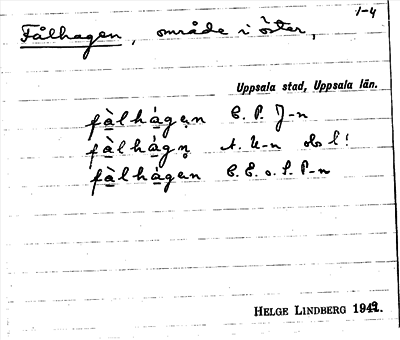 1-4
Fålhagen, område i öster,
Uppsala stad, Uppsala län.
fàlhágen C. P. J-n
fàlhágn A. U-n obs l!
fàlhágen C. E. o. S. P-n
HELGE LINDBERG 1949.